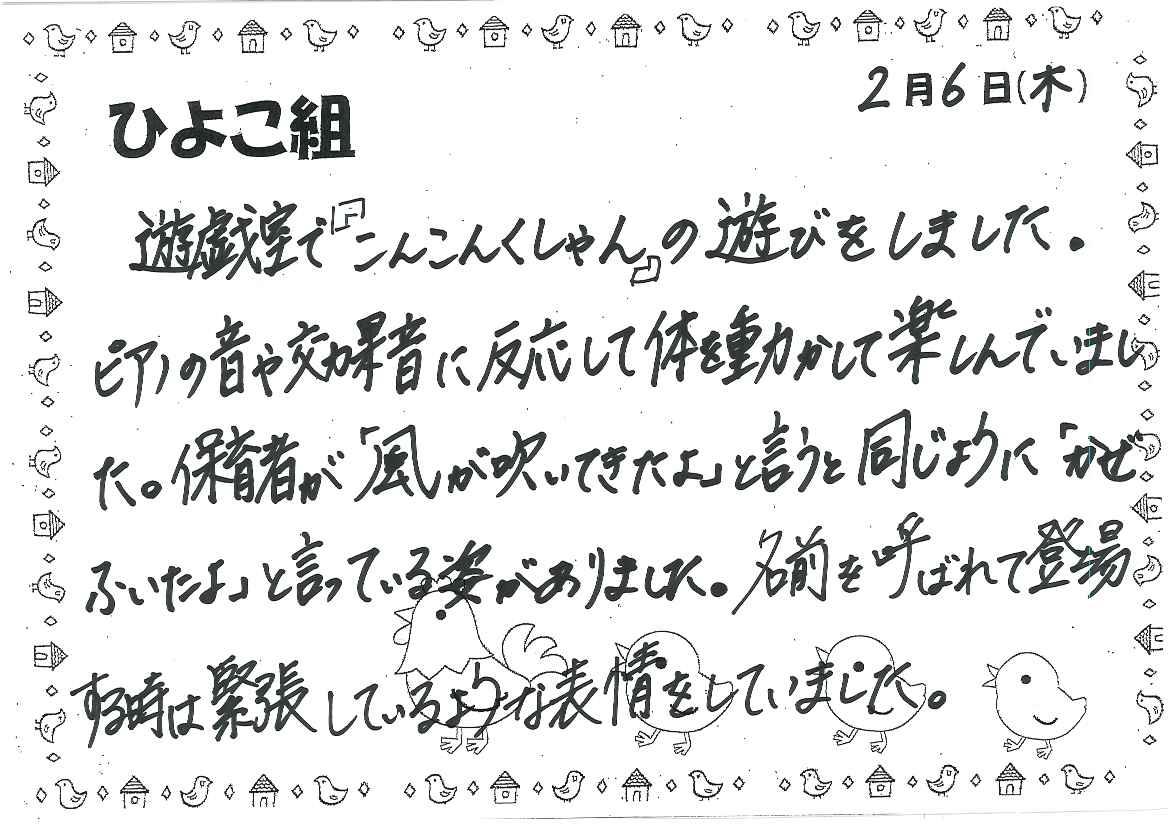 2月6日(木)
ひよこ組
遊戯室で『こんこんくしゃん』の遊びをしました。
ピアノの音や効果音に反応して体を動かして楽しんでいまし
た。保育者が「風が吹いてきたよ」と言うと同じように「かぜ
ふいたよ」と言っている姿がありました。名前を呼ばれて登場
する時は緊張しているような表情をしていました。